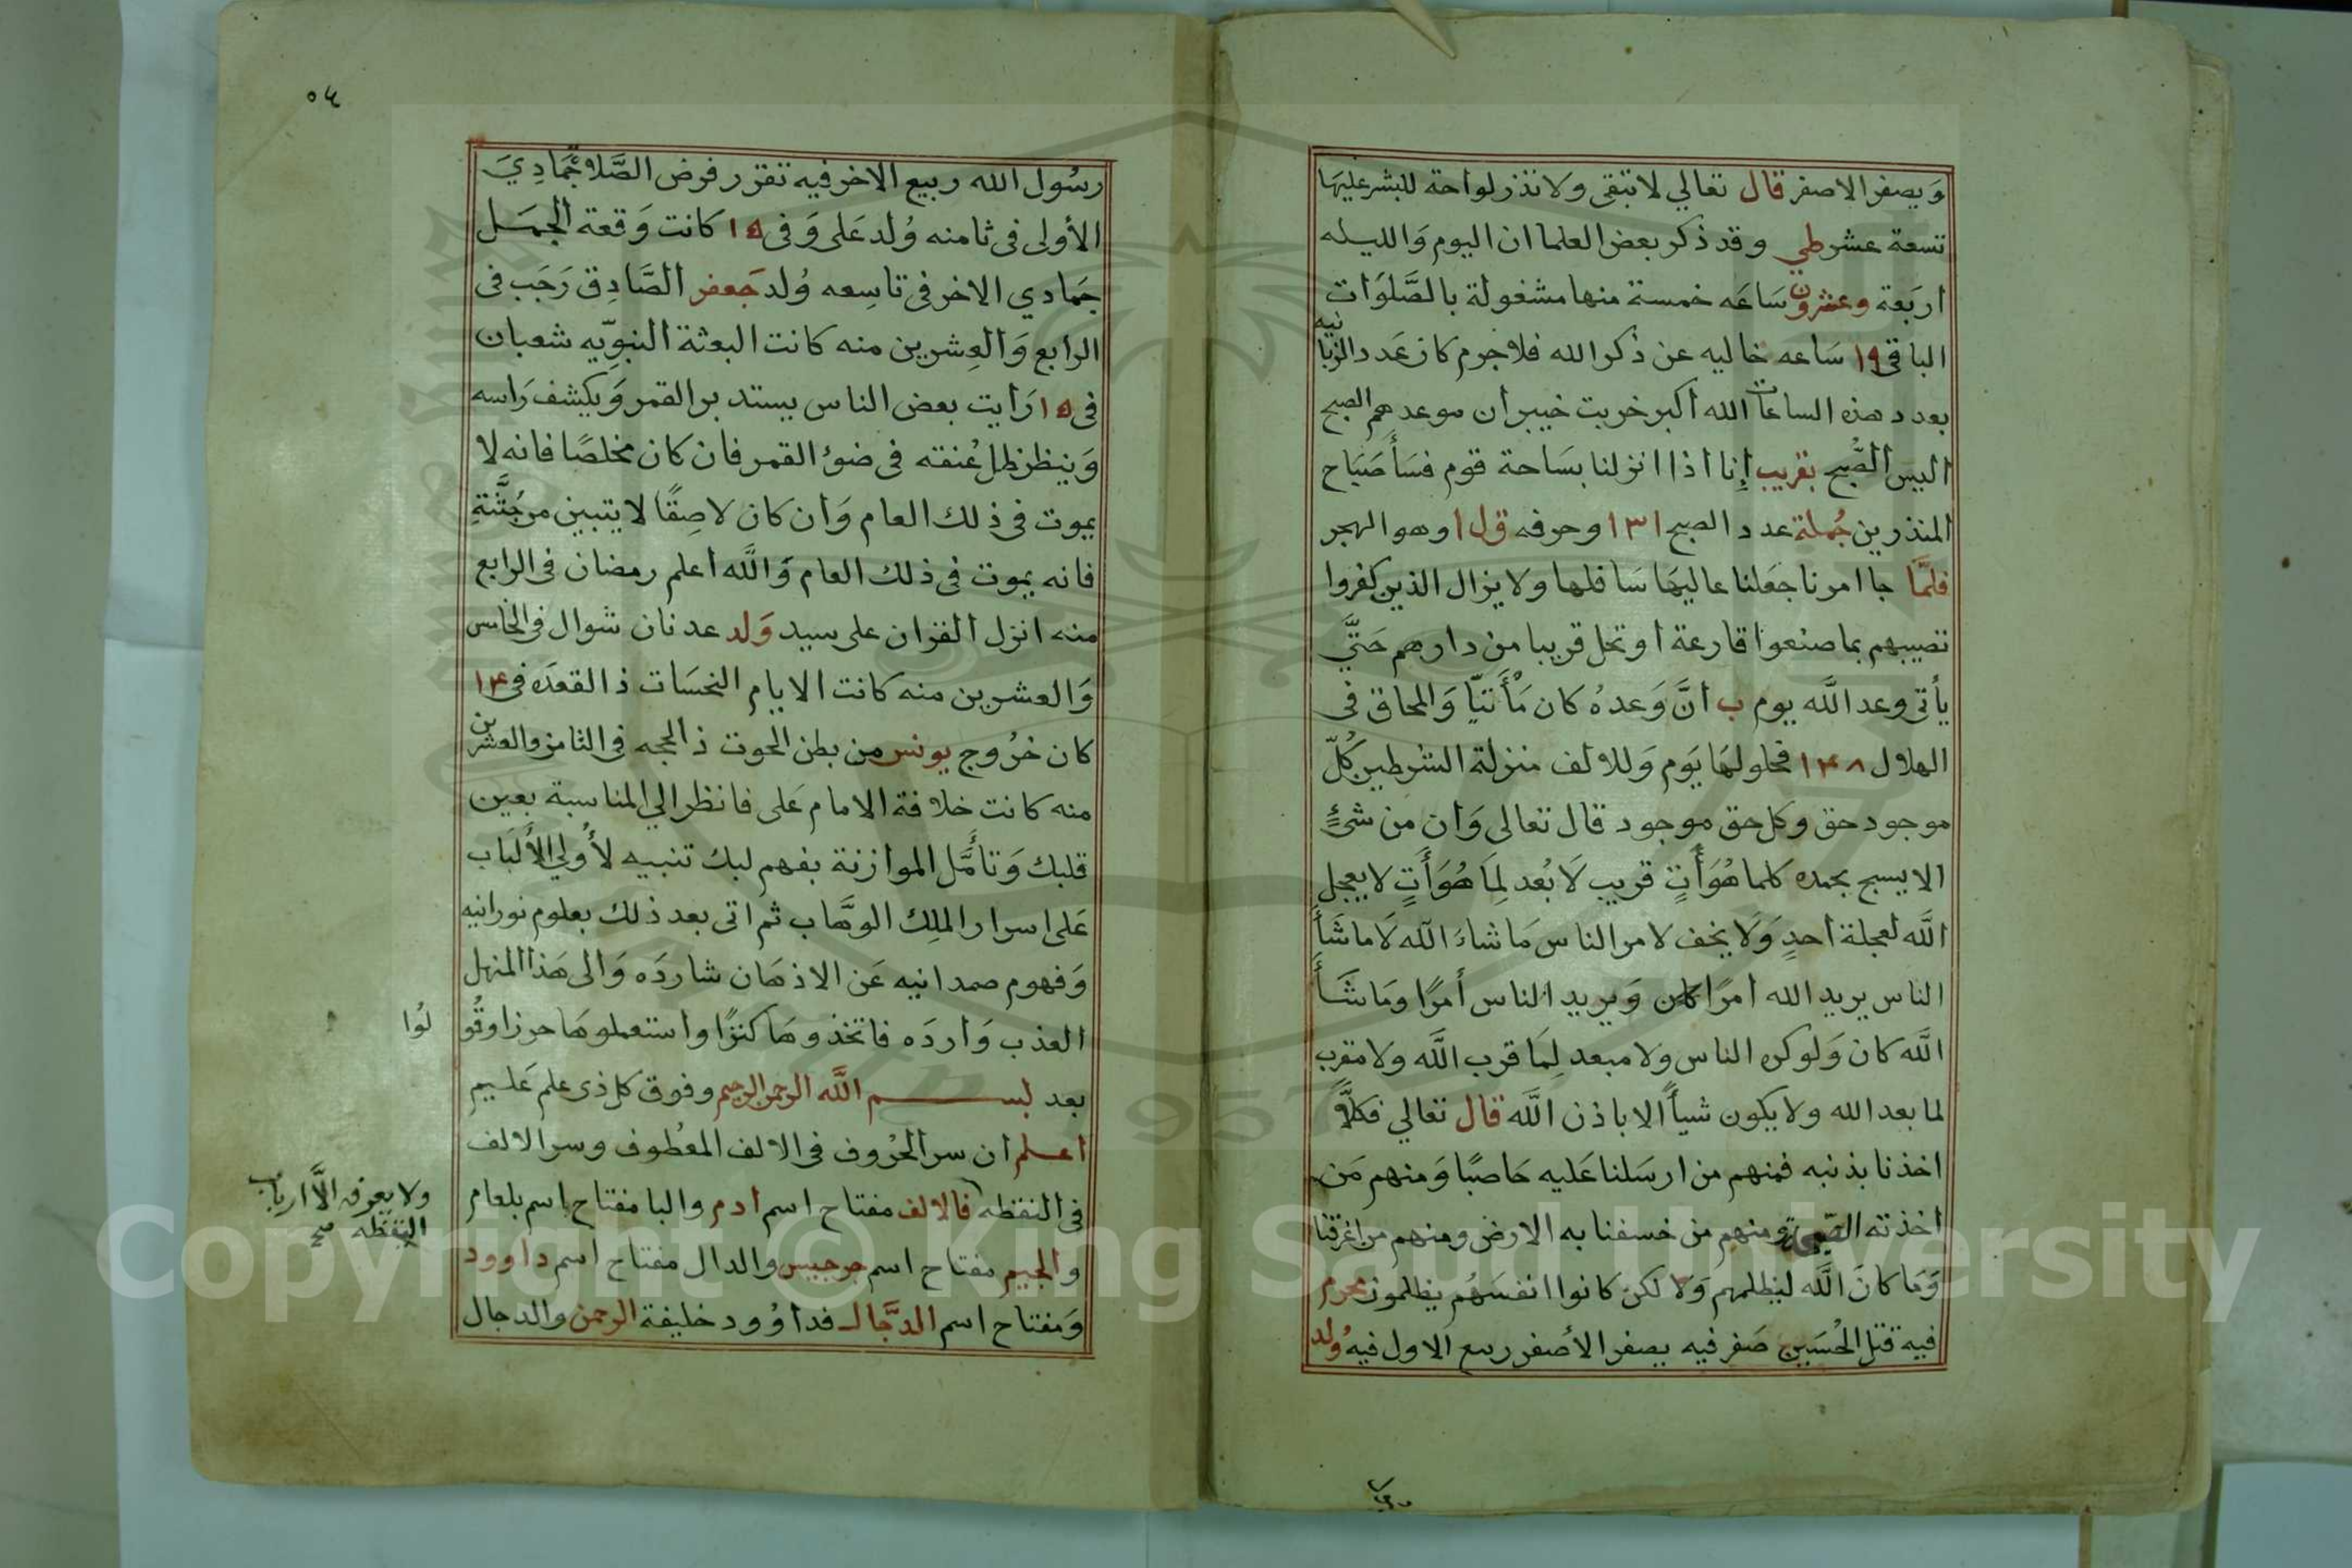 ويصفر الاصفر قال تعالي لا تبقى ولا تذر لواحة للبشر عليها
تسعة عشر طي وقد ذكر بعض العلما ان اليوم وَالليله
اربَعة وعشرون سَاعَه خمسة منها مشغولة بالصَّلوَات
الباقى ١٩ سَاعه خاليه عن ذكر الله فلاجرم كان عَدد الزبانيه
بعدد هذه الساعات الله أكبر خربت خيبر أن موعدهم الصبح
اليس الصُّبح بقريب إنا اذا انزلنا بسَاحة قوم فسَأ صَبَاح
المنذرين جُملة عدد الصبح ١٣١ وحرفه ق ل ا وهو الهجر
فلمَّا جا امرنا جعَلنا عاليهَا سَافلها ولا يزال الذين كفروا
تصيبهم بما صنعوا قارعة أو تحل قريبا من دارهم حَتَّي
يأتى وعد الله يوم ب أنَّ وَعدهُ كان مَأْتيّا وَالمحاق فى
الهلال ١٤٨ فحلولهَا يَوم وَللالف منزلة الشرطين كُلّ
موجود حق وكل حق موجود قال تعالى وَان من شئٍ
الا يسبح بحمده كلما هُوَ أَتٍ قريب لَا بُعد لِمَا هُوَ أَتٍ لا يعجل
الله لعجلة أحدٍ وَلَا يخف لامر الناس مَا شاءَ الله لَا ما شَأَ
الناس يريد الله امرًا كان وَيريد الناس أَمرًا ومَا شَأَ
الله كان وَلو كره الناس ولا مبعد لِمَا قرب اللَّه ولا مقرب
لما بعد الله ولا يكون شيأً الا باذن اللَّه قال تعالي فكلاًّ
اخذنا بذنبه فمنهم من ارسَلنا عَليه حَاصبًا وَمنهم مَن
اخذته الصيحة ومنهم من خسفنا به الارض ومنهم من اغرقنا
وَمَا كانَ اللَّه ليظلمهم وَلا لكن كانوا انفسَهُم يظلمون محرم
فيه قتل الحُسَين صَفر فيه يصفر الأصفر ربيع الاول فيه وُلد
٥٤
رسُول الله ربيع الاخر فيه تقرر فرض الصَّلاة جمَادِيَ
الأولى فى ثامنه وُلد عَلى وَفى ١٥ كانت وَقعة الجمَل
جمَادي الاخر فى تاسِعه وُلد جَعفر الصَّادِق رَجَب فى
الرابع وَالعِشرين منه كانت البعثة النبوِيّه شعبان
فى ١٥ رَأيت بعض الناس يستدبر القمر وَيكشف رَاسه
وَينظر ظل عُنقه فى ضوءُ القمر فان كان مخلصًا فانه لا
يموت فى ذلك العام وَان كان لاصِقًا لا يتبين من جُثَّتةِ
فانه يموت فى ذلك العام وَاللَّه اعلم رمضان فى الرابع
منه انزل القران على سيد وَلد عدنان شوال فى الخامس
وَالعشرين منه كانت الايام النحسَات ذا القعدَه فى ١٤
كان خرُوج يونس من بطن الحوت ذا الحجه فى الثامن والعشرين
منه كانت خلافة الامام عَلى فانظر الي المناسبة بعين
قلبك وَتأمَّل الموازنة بفهم لبك تنبيه لأُولي الأَلبَاب
عَلى اسرار الملِك الوهَّاب ثم اتى بعد ذلك بعلوم نورانيه
وَفهوم صمدانيه عَن الاذهَان شاردَه وَالى هَذا المنهل
العذب وَأردَه فاتخذوهَا كنزًا واستعملوهَا حرزا وقُولُوا
بعد بسم اللَّه الرحمن الرحيم وفوق كل ذى علم عَليم
اعلم ان سر الحُرُوف فى الالف المعُطوف وسر الالف
فى النقظه فالالف مفتاح اسم ادم والبا مفتاح اسم بلعام
ولا يعرف الاَّ ارباب
النقظه صح
والجيم مفتاح اسم جرجيس والدال مفتاح اسم داوود
وَمفتاح اسم الدجَّال فداوُود خليفة الرحمن والدجال